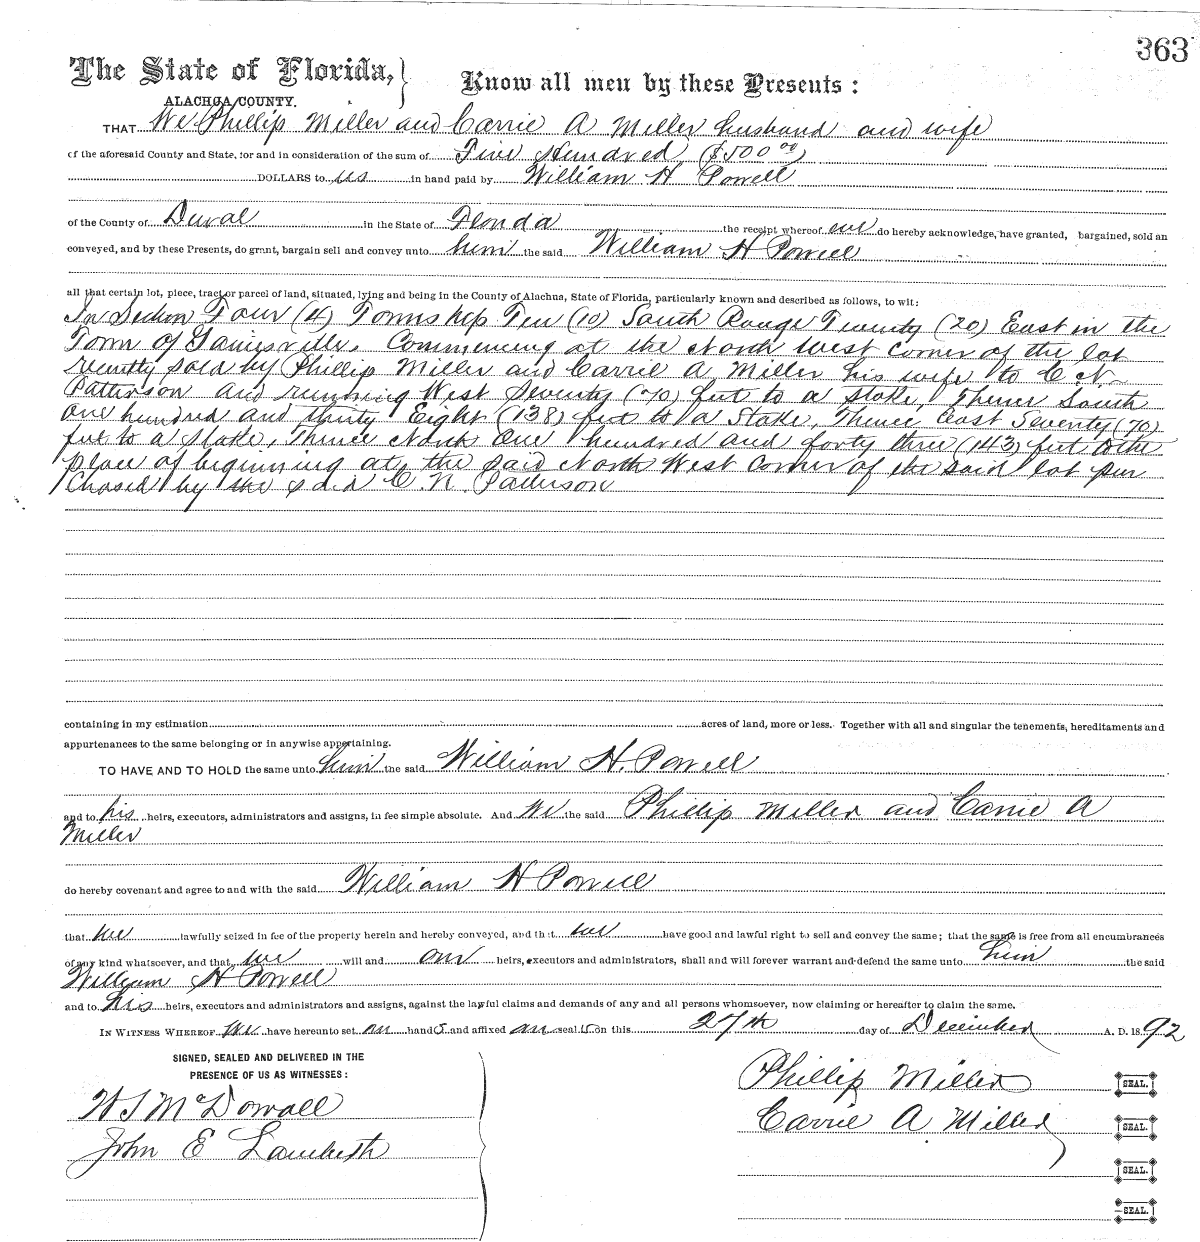 363
The State of Florida,
ALACHUA COUNTY.
Know all men by these Presents:
THAT We Phillip Miller and Carrie A Miller husband and wife
of the aforesaid County and State, for and in consideration of the sum of Five Hundred ($500 00)
DOLLARS to us in hand paid by William H Powell
of the County of Duval in the State of Florida the receipt whereof we do hereby acknowledge, have granted, bargained, sold an
conveyed, and by these Presents, do grant, bargain sell and convey unto him the said William H Powell
all that certain lot, piece, tract or parcel of land, situated, lying and being in the County of Alachua, State of Florida, particularly known and described as follows, to wit:
In Section Four (4) Township Ten (10) South Range Twenty (20) East in the
Town of Gainesville. Commencing at the North West corner of the lot
recently sold by Phillip Miller and Carrie A Miller his wife to C. N.
Patterson and running West Seventy (70) feet to a stake, Thence South
one hundred and thirty Eight (138) feet to a Stake, Thence east Seventy (70)
feet to a stake, Thence North One hundred and forty three (143) feet to the
place of beginning at the said North West corner of the said lot pur
chased by the said C. N. Patterson
containing in my estimation acres of land, more or less. Together with all and singular the tenements, hereditaments and
appurtenances to the same belonging or in anywise appertaining.
TO HAVE AND TO HOLD the same unto him the said William H. Powell
and to his heirs, executors, administrators and assigns, in fee simple absolute. And We the said Phillip Miller and Carrie A
Miller
do hereby covenant and agree to and with the said William H Powell
that we lawfully seized in fee of the property herein and hereby conveyed, and that we have good and lawful right to sell and convey the same; that the same is free from all encumbrances
of any kind whatsoever, and that we will and our heirs, executors and administrators, shall and will forever warrant and defend the same unto him the said
William H Powell
and to his heirs, executors and administrators and assigns, against the lawful claims and demands of any and all persons whomsoever, now claiming or hereafter to claim the same.
IN WITNESS WHEREOF We have hereunto set our hands and affixed our seals on this 27th day of December A. D. 1892
SIGNED, SEALED AND DELIVERED IN THE
PRESENCE OF US AS WITNESSES:
W S McDowall
John E Lambeth
Phillip Miller SEAL.
Carrie A Miller SEAL.
SEAL.
SEAL.